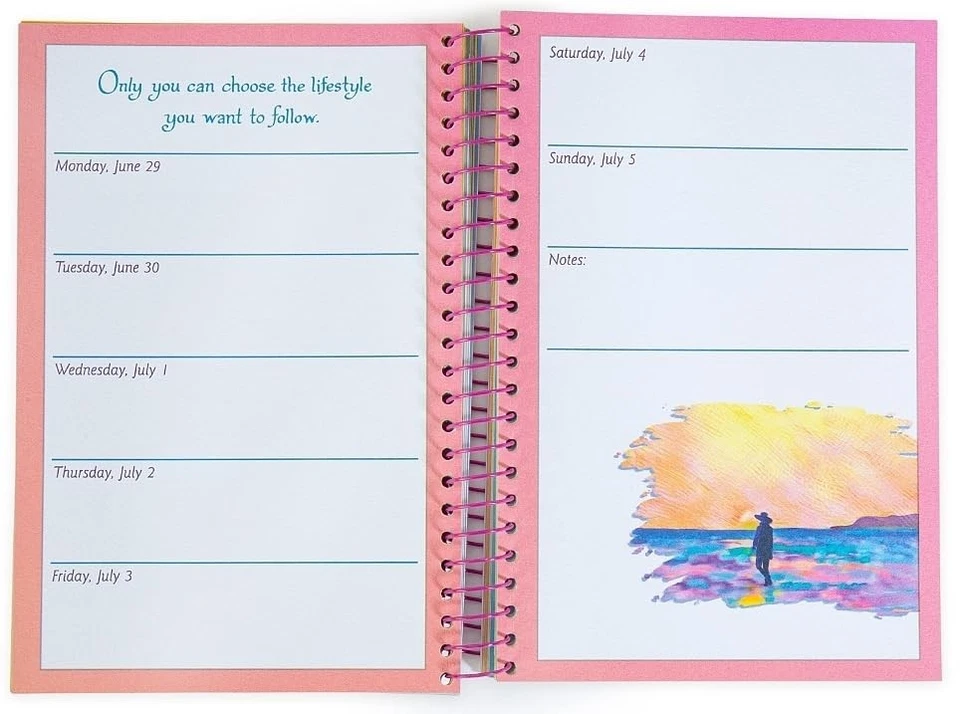 Only you can choose the lifestyle
you want to follow.
Monday, June 29
Tuesday, June 30
Wednesday, July 1
Thursday, July 2
Friday, July 3
Saturday, July 4
Sunday, July 5
Notes: